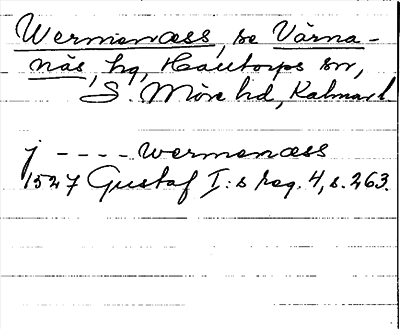 Wermenæss, se Värna-
näs, hg, Halltorps sn,
S. Möre hd, Kalmar l
j - - - - Wermenæss
1527 Gustaf I:s reg. 4, s. 263.